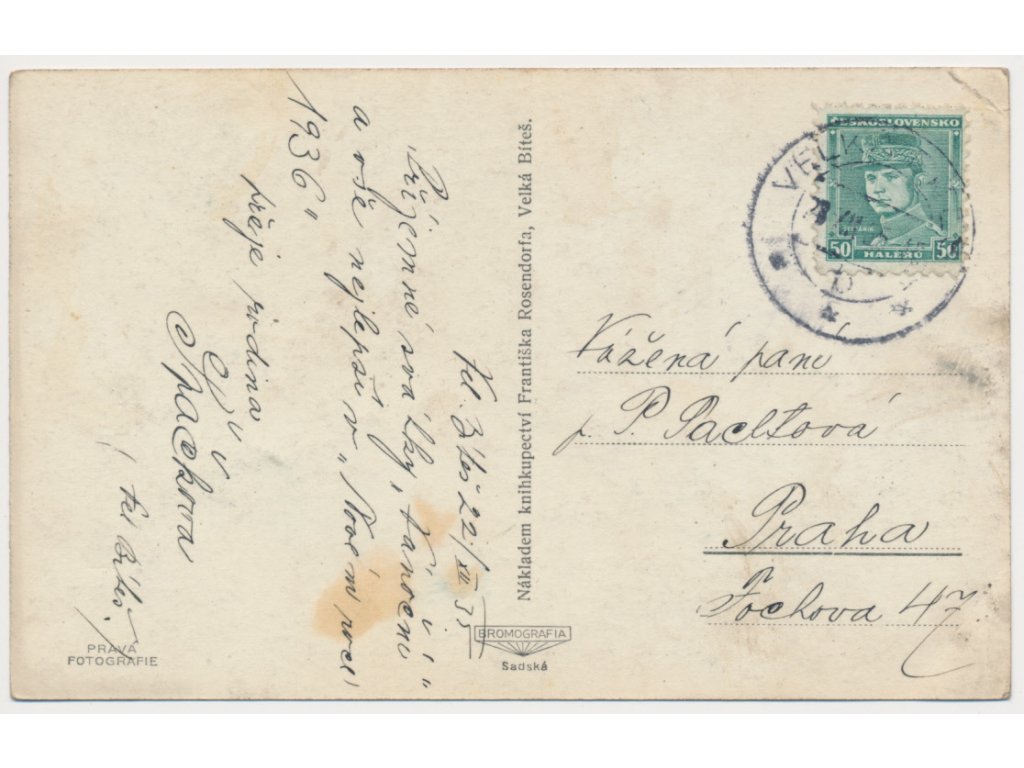 Vel. Bíteš 22/XII 35
„Příjemné svátky „Vánoční“
a vše nejlepší v „Novém roce
1936“
přeje rodina
Spačkova
( Vel Bíteš.)
PRAVÁ
FOTOGRAFIE
Nákladem knihkupectví Františka Rosendorfa, Velká Bíteš.
BROMOGRAFIA
Sadská
ČESKOSLOVENSKO
50 50
HALÉŘŮ
VELK
Vážená paní
p. P. Pacltová
Praha
Fochova 47.